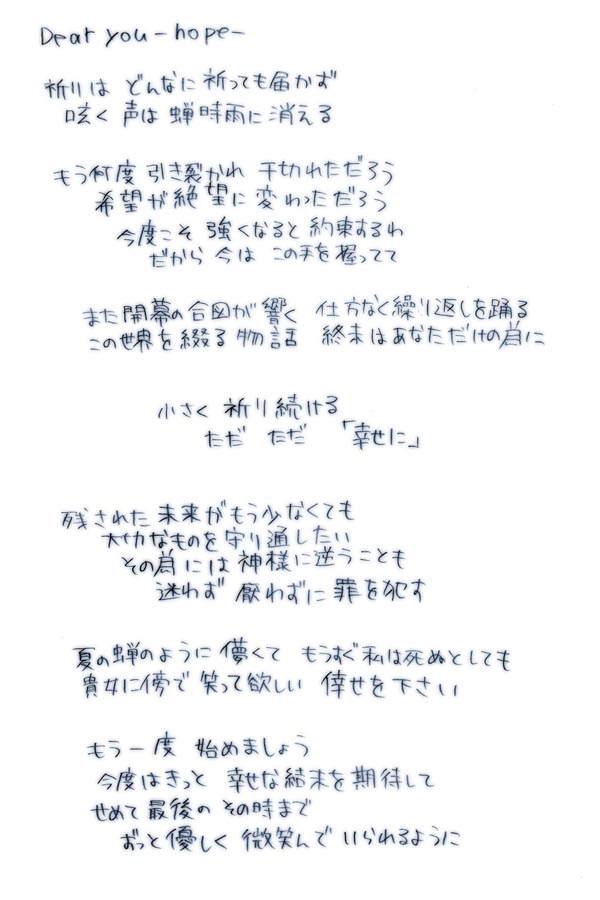 Dear you -hope-
祈りは どんなに 祈っても届かず
呟く 声は 蝉時雨に 消える
もう何度 引き裂かれ 千切れただろう
希望が絶望に 変わっただろう
今度こそ 強くなると 約束するわ
だから 今は この手を 握ってて
また開幕の合図が響く 仕方なく繰り返しを踊る
この世界を 綴る 物語 終末はあなただけの為に
小さく 祈り続ける
ただ ただ 「幸せに」
残された 未来がもう少なくても
大切なものを 守り通したい
その為には 神様に逆うことも
迷わず 厭わずに 罪を犯す
夏の蝉のように 儚くて もうすぐ私は死ぬとしても
貴女に傍で 笑って欲しい 倖せを下さい
もう一度 始めましょう
今度はきっと 幸せな結末を期待して
せめて 最後の その時まで
ずっと優しく 微笑んで いられるように